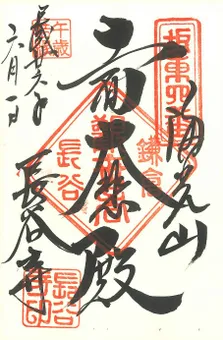 坂東四番
海光山
鎌倉
十一面大悲殿
長谷
長谷寺
長谷寺印
平成廿六年
六月一日
午歳